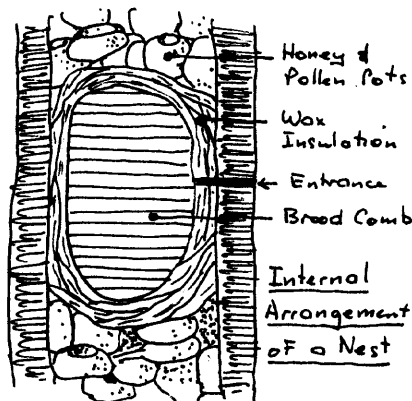 Honey &
Pollen Pots
Wax
Insulation
Entrance
Brood Comb
Internal
Arrangement
of a Nest